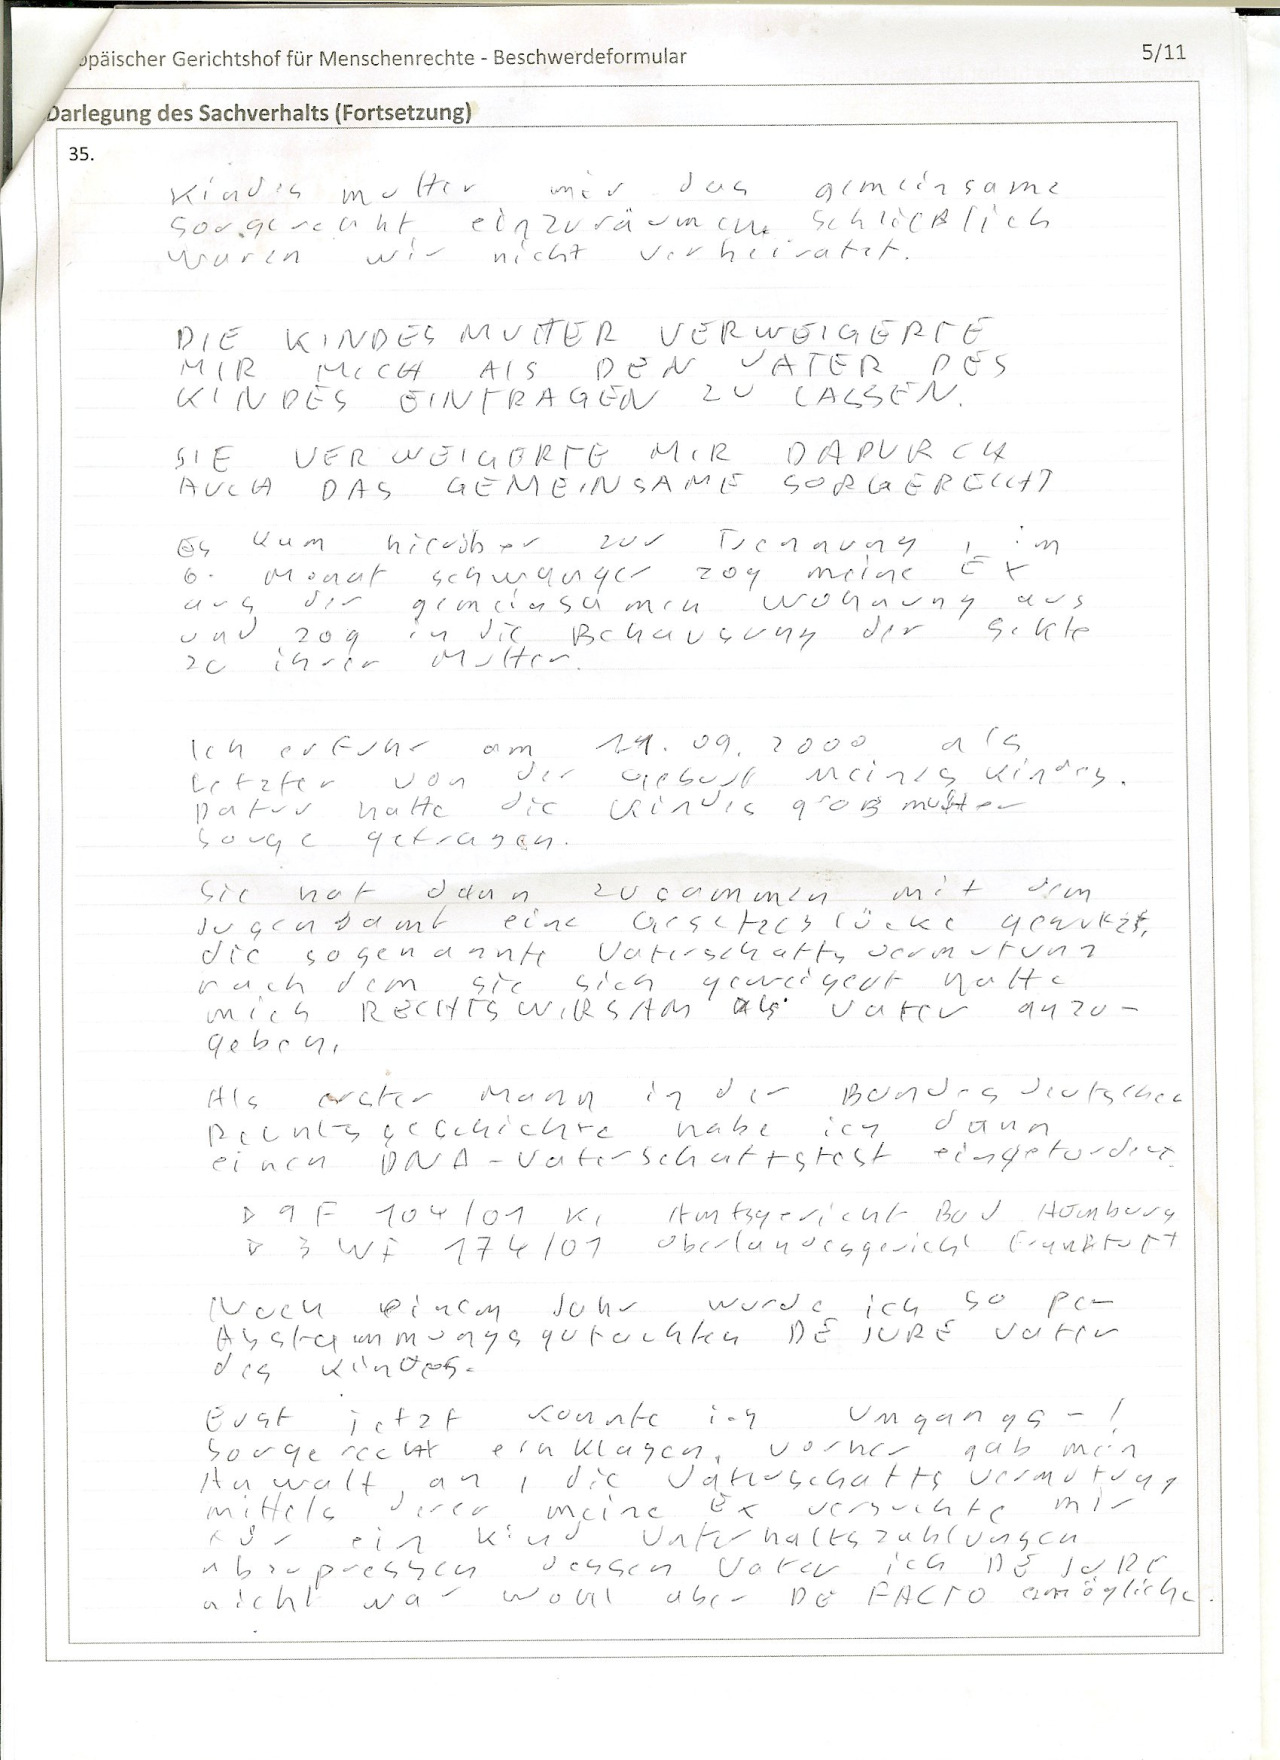 opäischer Gerichtshof für Menschenrechte - Beschwerdeformular 5/11
Darlegung des Sachverhalts (Fortsetzung)
35.
Kindes mutter mir das gemeinsame
Sorgerecht einzuräumen. Schließlich
waren wir nicht verheiratet.
DIE KINDESMUTTER VERWEIGERTE
MIR MICH ALS DEN VATER DES
KINDES EINTRAGEN ZU LASSEN.
SIE VERWEIGERTE MIR DADURCH
AUCH DAS GEMEINSAME SORGERECHT
Es kam hierüber zur Trennung, im
6. Monat schwanger zog meine Ex
aus der gemeinsamen Wohnung aus
und zog in die Behausung der Sekte
zu ihrer Mutter.
Ich erfuhr am 29.09.2000 als
letzter von der Geburt meines Kindes.
Dafür hatte die Kindes großmutter
Sorge getragen.
Sie hat dann zusammen mit dem
Jugendamt eine Gesetzeslücke genutzt,
die sogenannte Vaterschaftsvermutung
nach dem sie sich geweigert hatte
mich RECHTSWIRSAM als Vater anzu-
geben.
Als erster Mann in der Bundesdeutschen
Rechtsgeschichte habe ich dann
einen DNA-Vaterschaftstest eingefordert.
9 F 104/01 KI Amtsgericht Bad Homburg
3 WF 174/01 Oberlandesgericht Frankfurt
Nach einem Jahr wurde ich so per
Abstammungsgutachten DE JURE Vater
des Kindes.
Erst jetzt konnte ich Umgangs-/
Sorgerecht einklagen, vorher gab mein
Anwalt, an, die Vaterschaftsvermutung
mittels derer meine Ex versuchte mir
für ein Kind Unterhaltszahlungen
abzupressen dessen Vater ich DE JURE
nicht war wohl aber DE FACTO ermögliche.